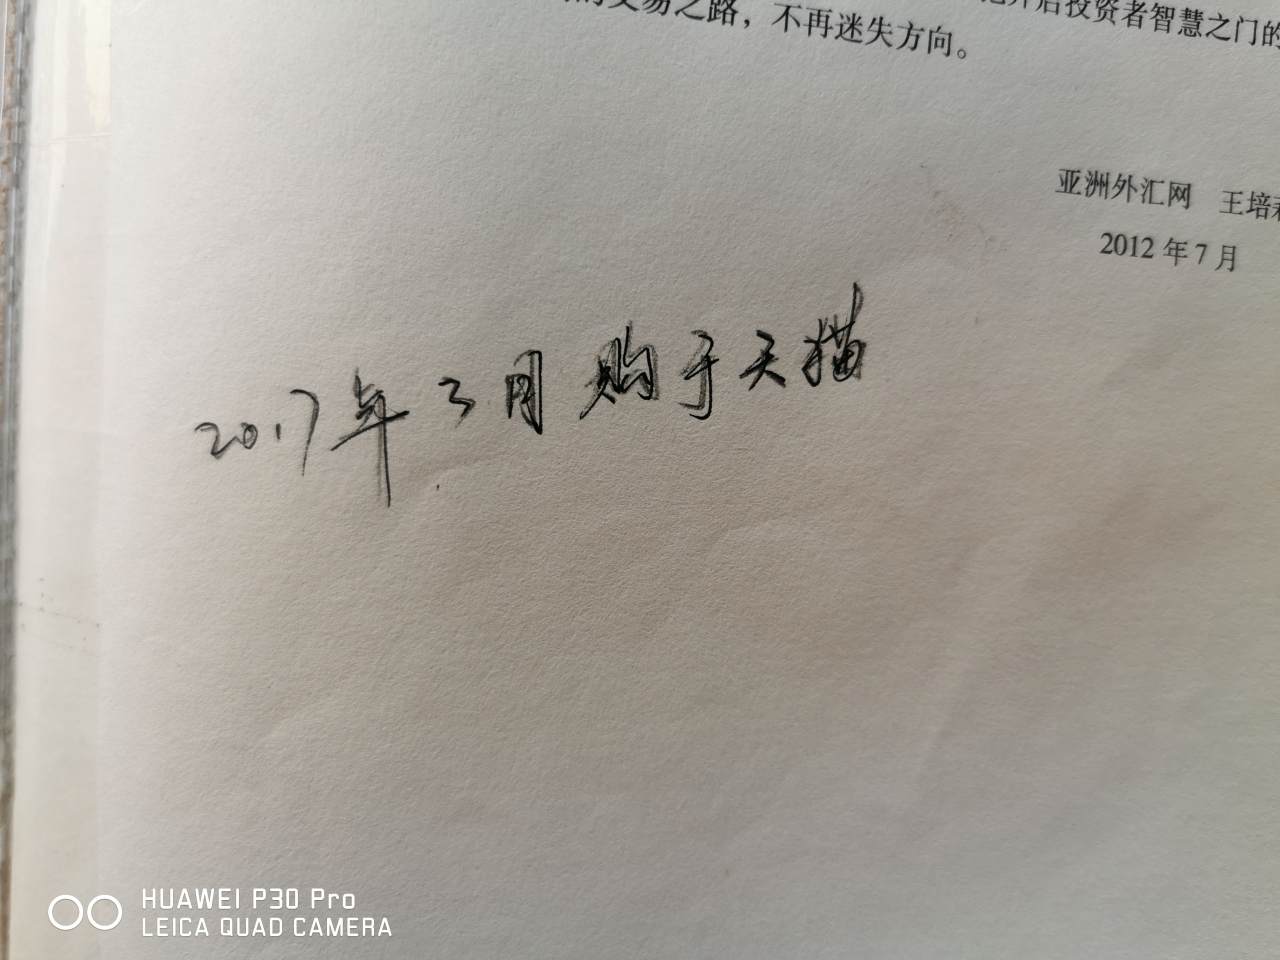 开启投资者智慧之门的
交易之路，不再迷失方向。
亚洲外汇网 王培
2012 年 7 月
2017年3月购于天猫
HUAWEI P30 Pro
LEICA QUAD CAMERA